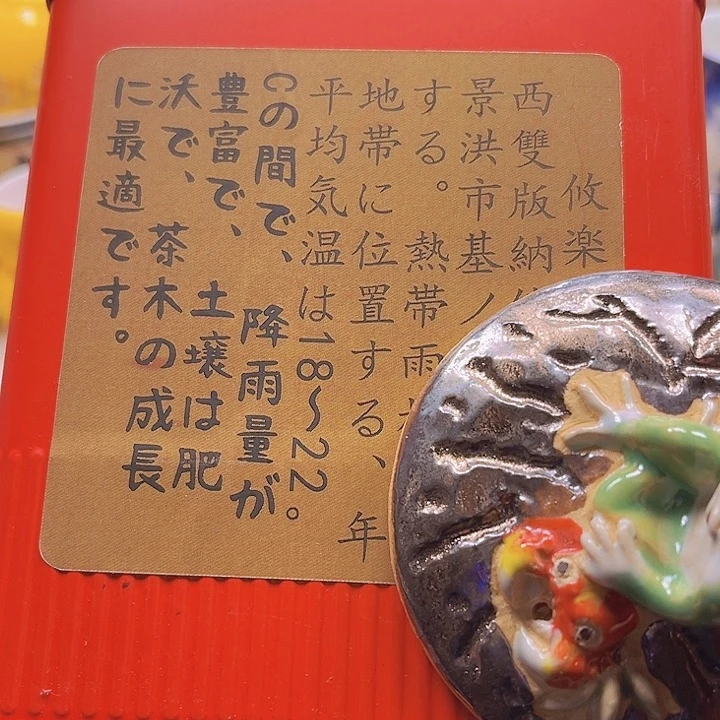 攸楽
西雙版納
景洪市基ノ
する。熱帯雨
地帯に位置する、年
平均気温は18～22。
Cの間で、降雨量が
豊富で、土壌は肥
沃で、茶木の成長
に最適です。